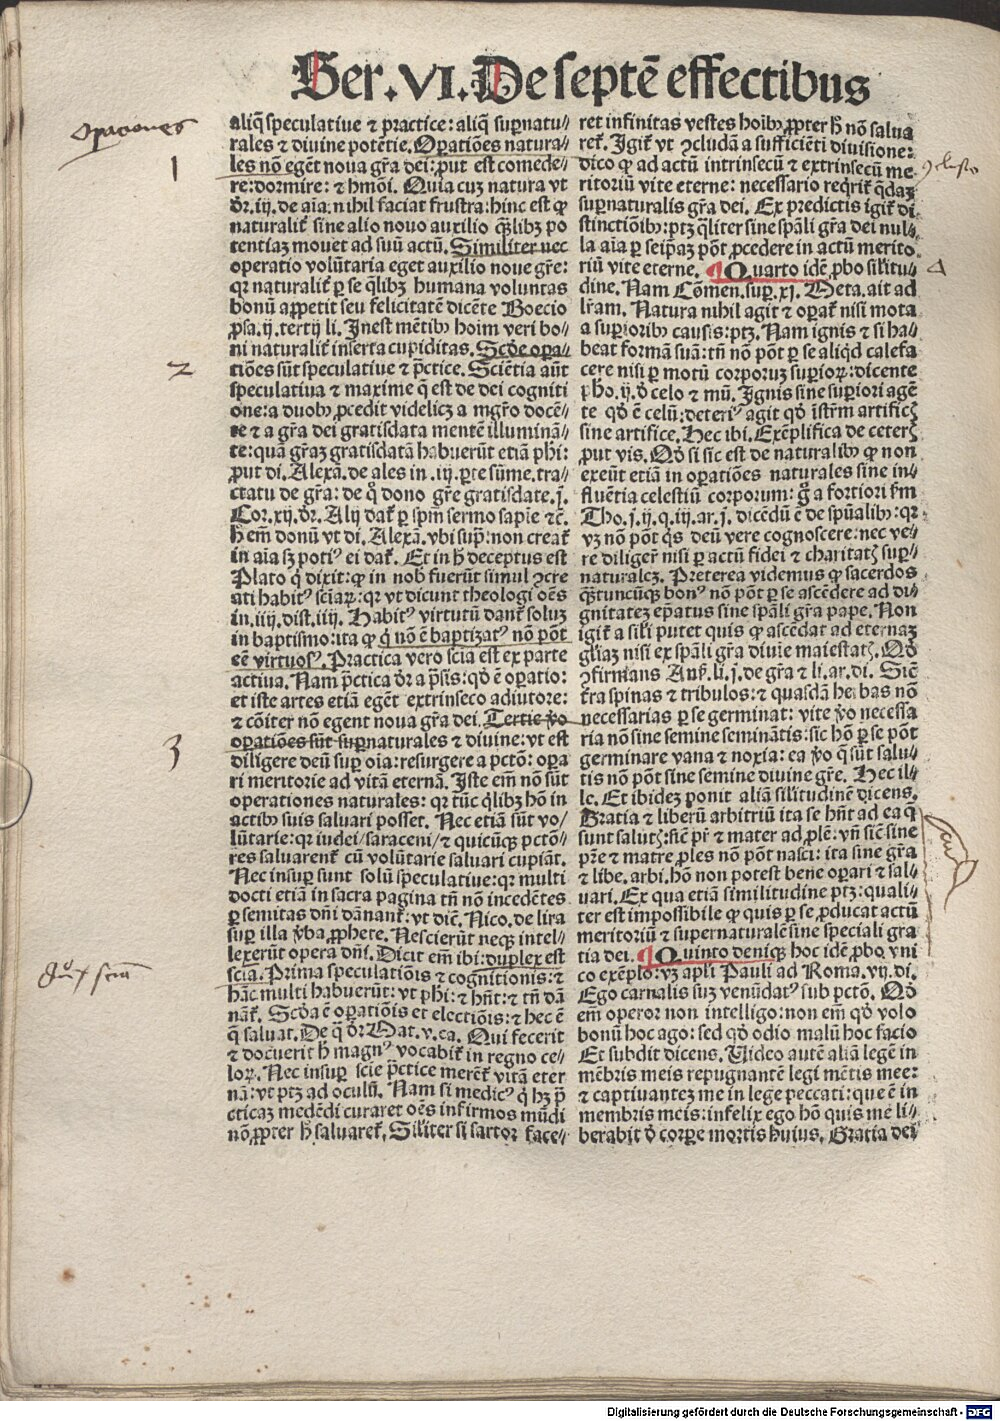 Ser.VI.De septē effectibus
Oparones
1
2
3
duplex scia
aliq̄ speculatiue ⁊ practice: aliq̄ suꝑnatu⸗
rales ⁊ diuine potētie. Oꝑatiōes natura⸗
les nō egēt noua gr̄a dei: ꝓut est comede⸗
re: dormire: ⁊ hmōi. Quia cuꝫ natura vt
dr̄. iij. de aīa: nihil faciat frustra: hinc est ꝙ
naturalit̄ sine alio nouo auxilio q̄libꝫ po
tentiaꝫ mouet ad suū actū. Similiter nec
operatio volūtaria eget auxilio noue gr̄e:
qꝛ naturalit̄ ꝑ se q̄libꝫ humana voluntas
bonū appetit seu felicitatē dicēte Boecio
ꝓsa. ij. tertij li. Inest mētibꝰ hoim veri bo⸗
ni naturalit̄ inserta cupiditas. Scōe oꝑa⸗
tiōes sūt speculatiue ⁊ p̄ctice. Sciētia aūt
speculatiua ⁊ maxime q̄ est de dei cogniti
one: a duobꝰ ꝓcedit videlicꝫ a mgr̄o docē⸗
te ⁊ a gr̄a dei gratisdata mentē illuminā⸗
te: quā gr̄aꝫ gratisdatā habuerūt etiā phi:
ꝓut di. Alexā. de ales in .iij. ꝑte sūme. tra⸗
ctatu de gr̄a: de q̊ dono gr̄e gratisdate. j.
Cor. xij. dr̄. Alij dat̄ ꝑ spm̄ sermo sapīe ⁊c̄.
h̄ em̄ donū vt di. Alexā. vbi supꝰ: non creat̄
in aīa sꝫ potiꝰ ei dat̄. Et in h̄ deceptus est
Plato q̇ dixit: ꝙ in nob̄ fuerūt simul ꝯcre
ati habitꝰ sciaꝝ: qꝛ vt dicunt theologi oēs
in. iiij. dist. iiij. Habitꝰ virtutū dant̄ soluꝫ
in baptismo: ita ꝙ q̇ nō ē baptizatꝰ nō pōt
eē virtuosꝰ. Practica vero scīa est ex parte
actiua. Nam p̄ctica dr̄ a p̄sis: qd̄ ē operatio:
et iste artes etiā egēt extrinseco adiutore:
⁊ cōiter nō egent noua gr̄a dei. Tertie v̄o
oꝑatiōes sūt suꝑnaturales ⁊ diuine: vt est
diligere deū suꝑ oīa: resurgere a pctō: oꝑa
ri meritorie ad vitā eternā. Iste em̄ nō sūt
operationes naturales: qꝛ tūc q̄libꝫ hō in
actibꝰ suis saluari posset. Nec etiā sūt vo⸗
lūtarie: qꝛ iudei/ saraceni/ ⁊ quicūqꝫ pctō⸗
res saluarent̄ cū volūtarie saluari cupiāt.
Nec insuꝑ sunt solū speculatiue: qꝛ multi
docti etiā in sacra pagina tn̄ nō incedētes
ꝑ semitas dn̄i dānant̄: vt diē. Nico. de lira
suꝑ illa v̄ba ꝓphete. Nescierūt neqꝫ intel⸗
lexerūt opera dn̄i. Dicit em̄ ibi: duplex est
scia. Prima speculatiōis ⁊ cognitionis: ⁊
hāc multi habuerūt: vt phi: ⁊ hn̄t: ⁊ tn̄ dā
nāt̄. Scōa ē oꝑatiōis et electiōis: ⁊ hec ē
q̄ saluat. De q̄ dr̄ Mat. v. ca. Qui fecerit
⁊ docuerit h̄ magnꝰ vocabit̄ in regno ce⸗
loꝝ. Nec insuꝑ scie p̄ctice merēt̄ vitā eter
nā: vt ptꝫ ad oculū. Nam si medicꝰ q̇ hꝫ p̄
cticaꝫ medēdi curaret oēs infirmos mūdi
nō ꝓpter h̄ saluaret̄. Silʼiter si sartor face⸗
ret infinitas vestes hoibꝰ ꝓpter h̄ nō salua
ret̄. Igit̄ vt ꝯcludā a sufficiēti diuisione:
dico ꝙ ad actū intrinsecū ⁊ extrinsecū me
ritoriū vite eterne: necessario reqrit̄ q̄daꝫ
suꝑnaturalis gr̄a dei. Ex predictis igit̄ di
stinctiōibꝰ: ptꝫ q̄liter sine sp̄ali gr̄a dei nul⸗
la aīa ꝑ seip̄aꝫ pōt ꝓcedere in actū merito⸗
riū vite eterne. ¶ Quarto idē ꝓbo silʼitu⸗
dine. Nam Cōmen. suꝑ. xj. Meta. ait ad
lr̄am. Natura nihil agit ⁊ oꝑat̄ nisi mota
a suꝑioribꝰ causis: ptꝫ. Nam ignis ⁊ si ha⸗
beat formā suā: tn̄ nō pōt ꝑ se aliqd calefa
cere nisi ꝑ motū corporuꝫ suꝑioꝝ: dicente
pho. ij. d̄ celo ⁊ mū. Ignis sine suꝑiori agē
te qd̄ ē celū: deteriꝰ agit qd̄ īstrm̄ artificꝭ
sine artifice. Hec ibi. Exēplifica de ceterꝭ
ꝓut vis. Qd̄ si sic est de naturalibꝰ ꝙ non
exeūt etiā in oꝑatiōes naturales sine in⸗
fluētia celestiū corporum: g̊ a fortiori fm
Tho. j. ij. q. iij. ar. j. dicēdū ē de spūalibꝰ: qꝛ
vꝫ nō pōt q̇s deū vere cognoscere: nec ve⸗
re diligeř nisi ꝑ actū fidei ⁊ charitatꝭ suꝑ⸗
naturaleꝫ. Preterea videmus ꝙ sacerdos
q̄tūcūqꝫ bonꝰ nō pōt ꝑ se ascēdere ad di⸗
gnitateꝫ ep̄atus sine sp̄ali gr̄a pape. Non
igit̄ a silʼi putet quis ꝙ ascēdat ad eternaꝫ
glīaꝫ nisi ex sp̄ali gr̄a diuīe maiestatꝭ. Qd̄
ꝯfirmans Ans̄. li. j. de gr̄a ⁊ li. ar. di. Sic̄
t̄ra spinas ⁊ tribulos: ⁊ quasdā herbas nō
necessarias ꝑ se germinat: vite v̄o necessa
ria nō sine semine seminātis: sic hō ꝑ se pōt
germinare vana ⁊ noxia: ea v̄o q̄ sūt salu⸗
tis nō pōt sine semine diuine gr̄e. Hec il⸗
le. Et ibideꝫ ponit aliā silʼitudinē dicens.
Gratia ⁊ liberū arbitriū ita se hn̄t ad ea q̄
sunt salutꝭ: sic̄ pr̄ ⁊ mater ad ꝓlē: vn̄ sic̄ sine
pr̄e ⁊ matre ꝓles nō pōt nasci: ita sine gr̄a
⁊ libe. arbi. hō non potest bene oꝑari ⁊ sal⸗
uari. Ex qua etiā similitudine ptꝫ: quali⸗
ter est impossibile ꝙ quis ꝑ se ꝓducat actū
meritoriū ⁊ supernaturalē sine speciali gra
tia dei. ¶ Quinto deniqꝫ hoc idē ꝓbo vni
co exēplo: vꝫ apl̄i Pauli ad Roma. vij. di.
Ego carnalis suꝫ venūdatꝰ sub pctō. Qd̄
em̄ operor non intelligo: non em̄ qd̄ volo
bonū hoc ago: sed qd̄ odio malū hoc facio
Et subdit dicens. Video autē aliā legē in
mēbris meis repugnantē legi mētis mee:
⁊ captiuanteꝫ me in lege peccati: que ē in
membris meis: infelix ego hō quis me li⸗
berabit d̄ corꝑe mortis huius. Gratia dei
ꝯclusio
4
Digitalisierung gefördert durch die Deutsche Forschungsgemeinschaft - DFG